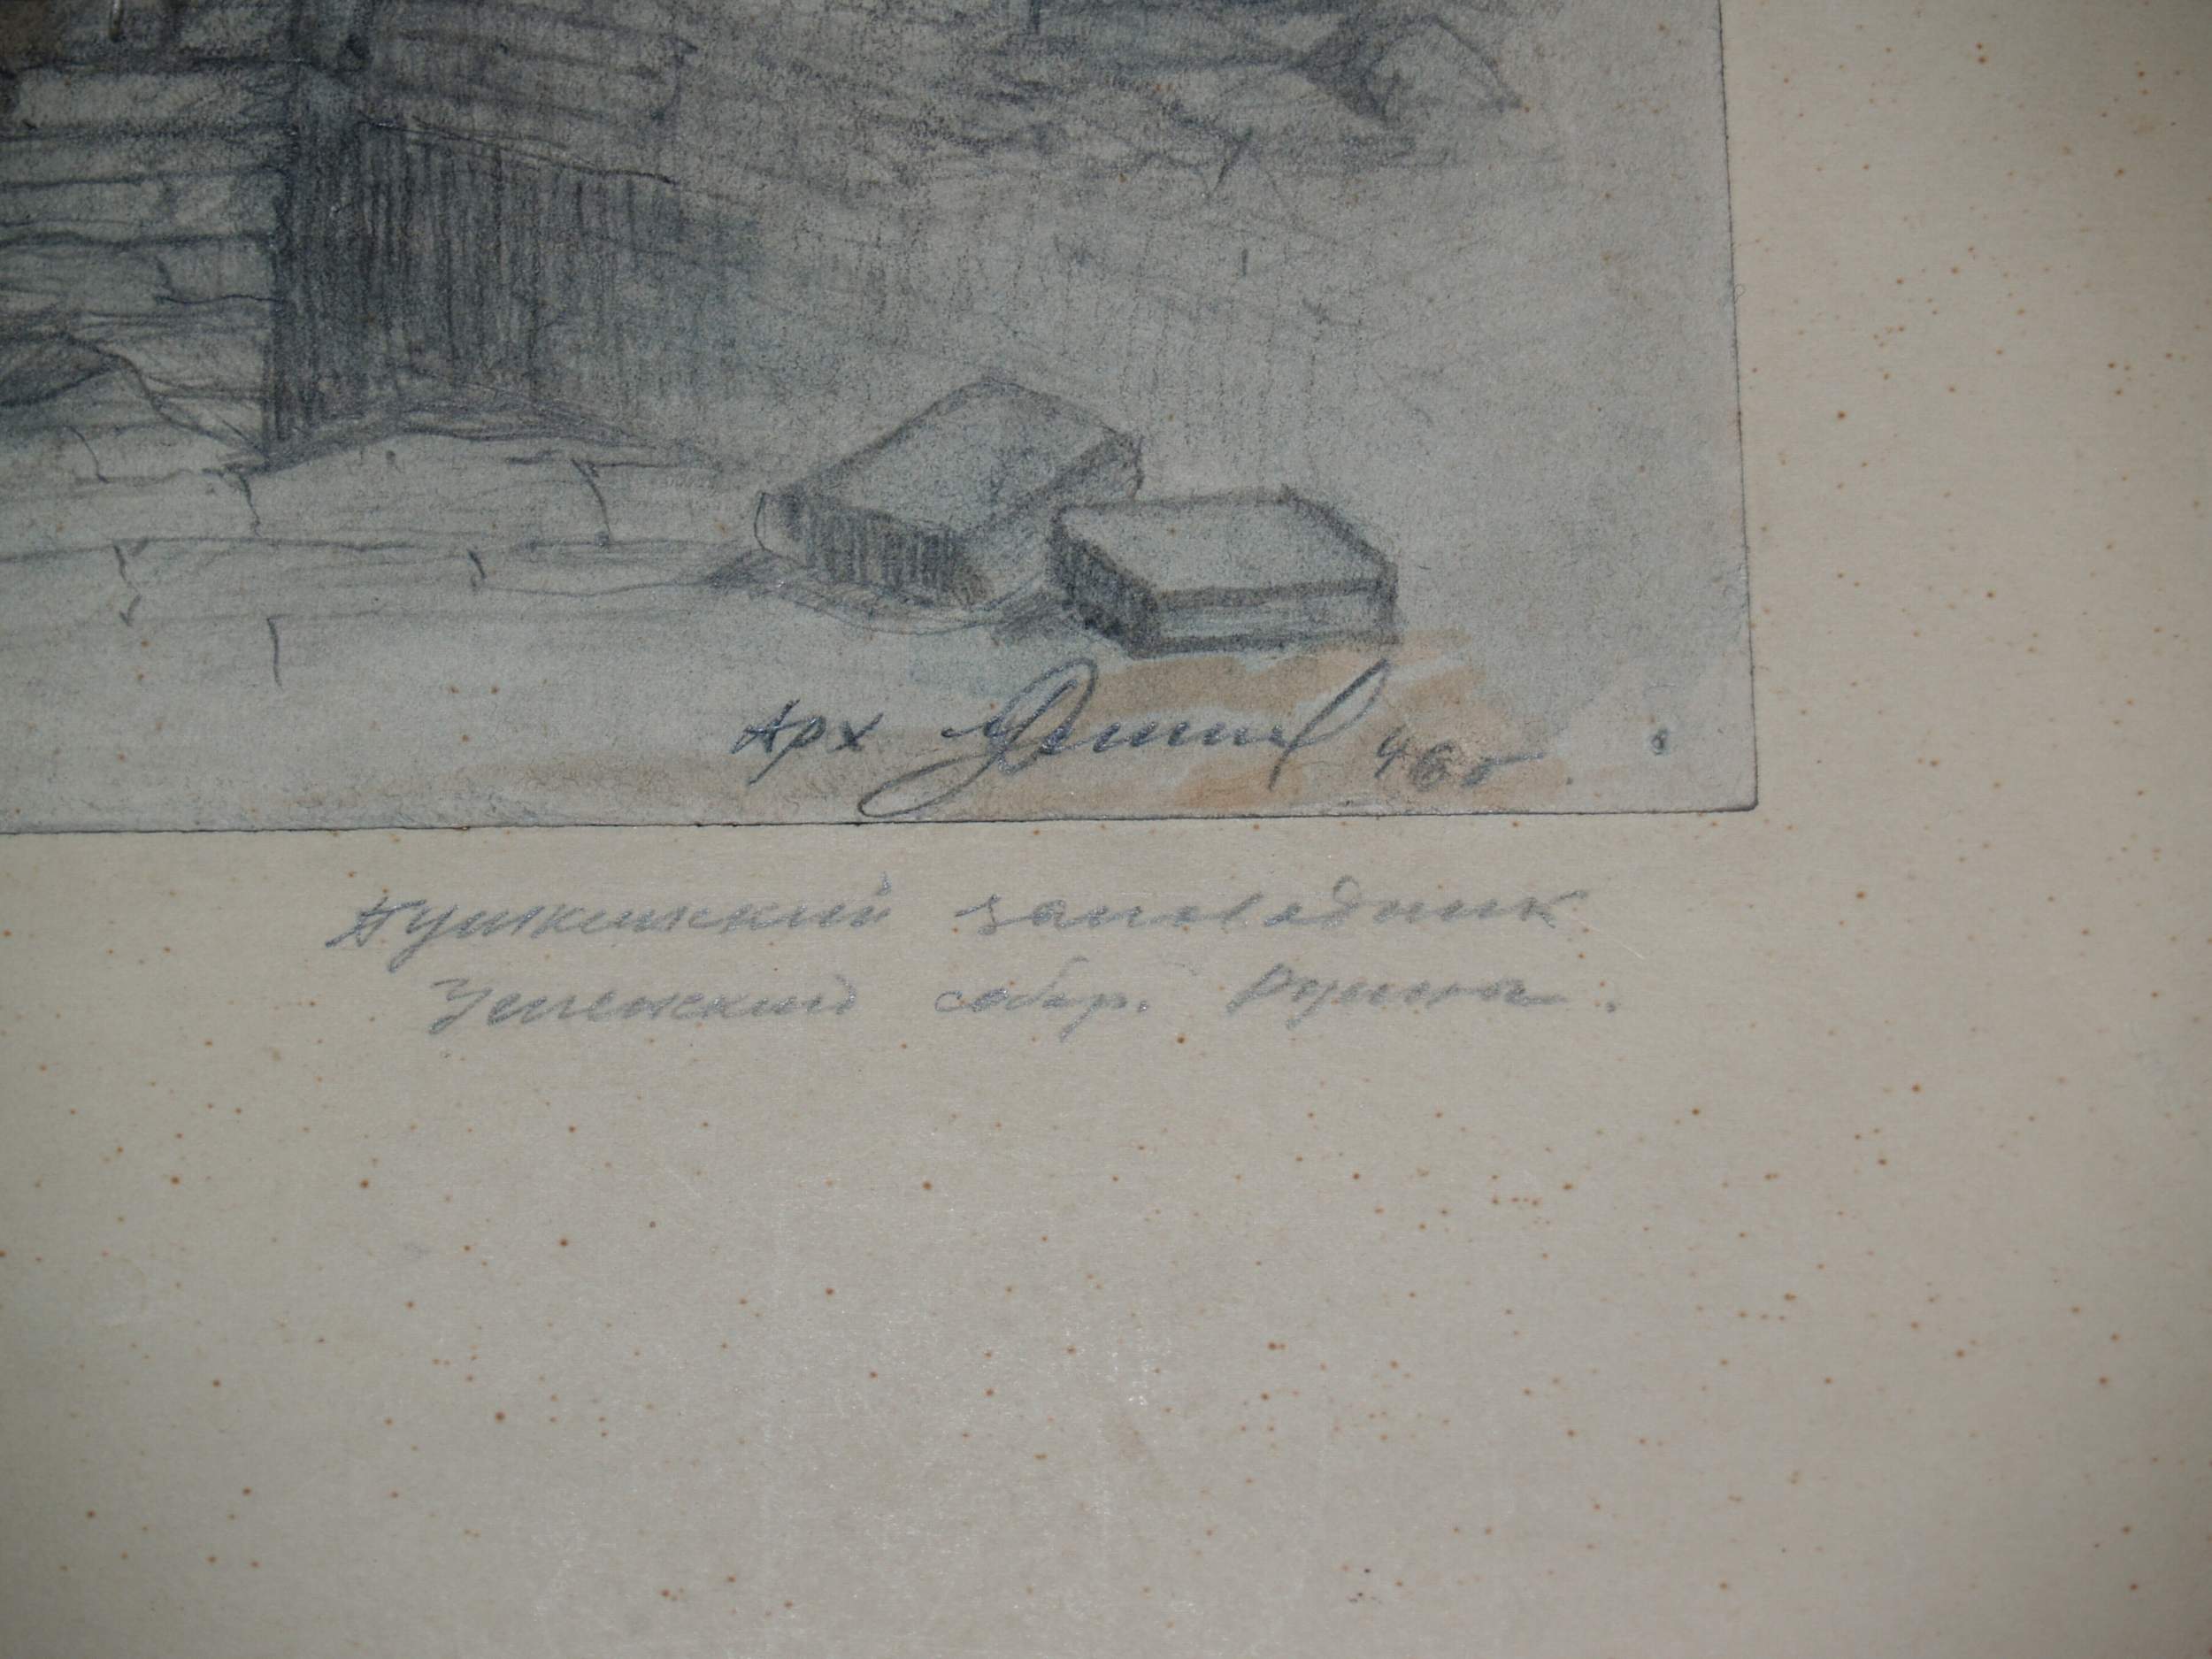 Арх 46г.
Пушкинский заповедник
Успенский собор. Руины.